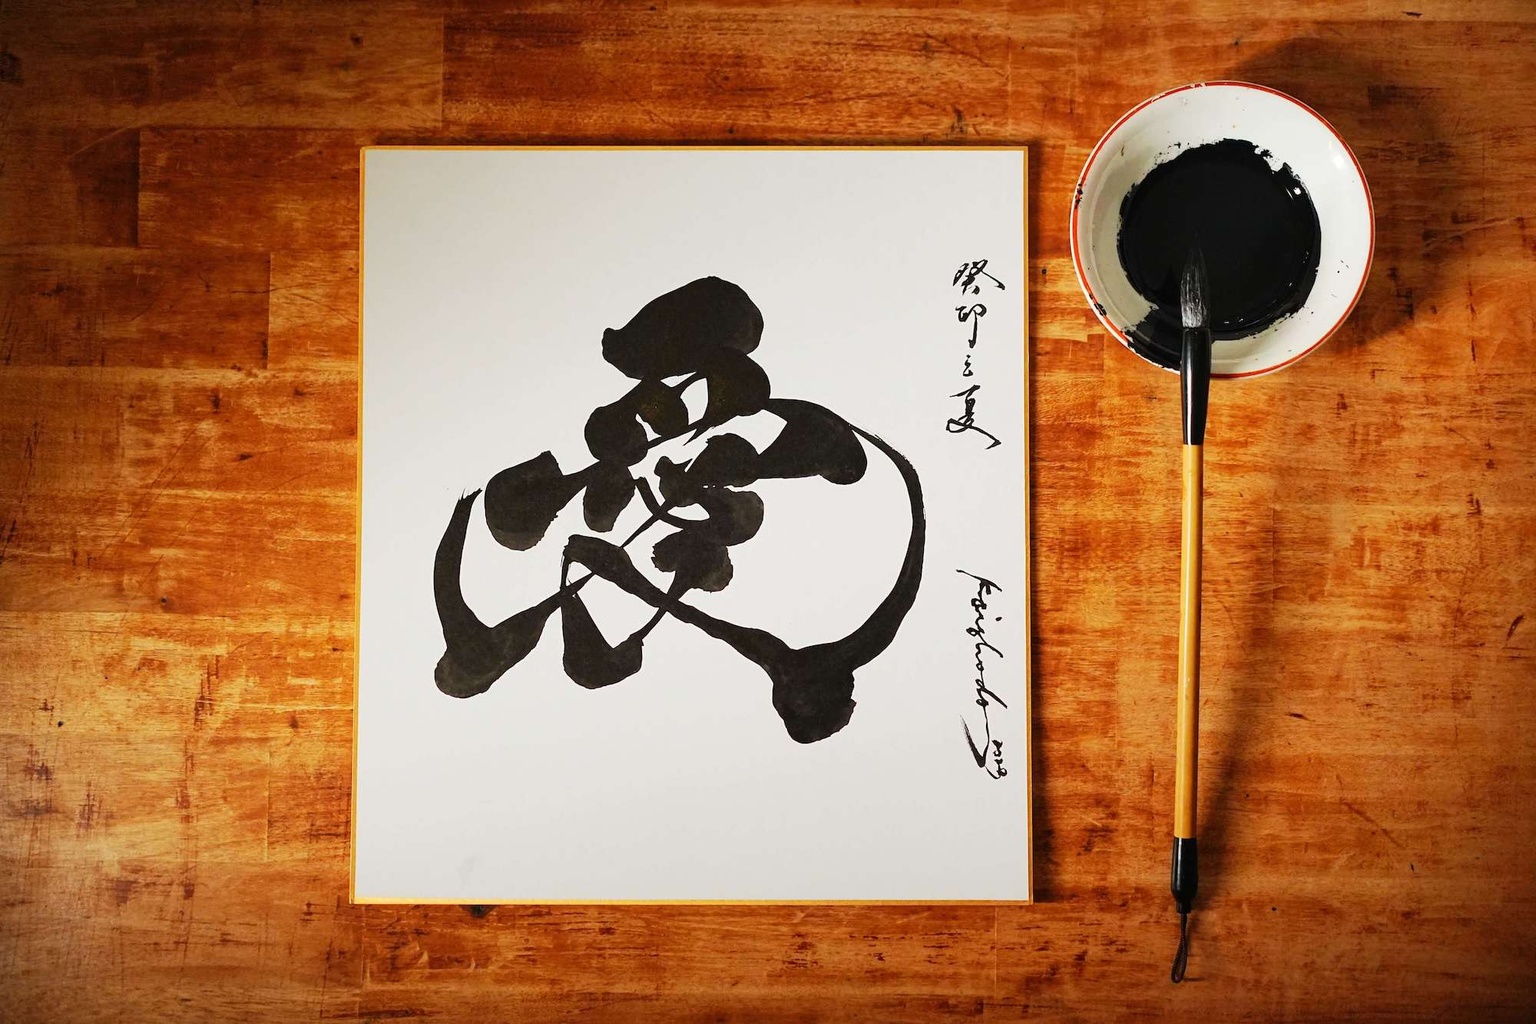 愛
癸卯之夏
Kaishodo 2023